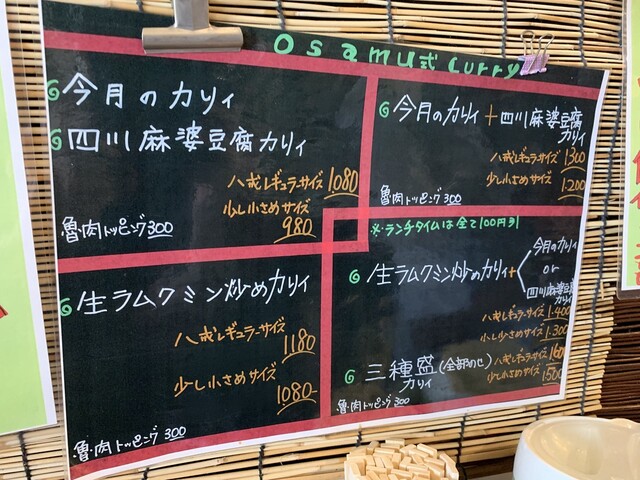 Osamu式 Curry
今月のカリィ
四川麻婆豆腐カリィ
八戒レギュラーサイズ 1080
少し小さめサイズ
980
魯肉トッピング300
今月のカリィ+四川麻婆豆腐
カリィ
八戒レギュラーサイズ 1300
少し小さめサイズ 1200
魯肉トッピング 300
※ランチタイムは全て100円引
生ラムクミン炒めカリィ
八戒レギュラーサイズ
1180
少し小さめサイズ
1080
魯肉トッピング 300
生ラムクミン炒めカリィ+
今月のカリィ
or
四川麻婆豆腐
カリィ
八戒レギュラーサイズ 1.400
少し小さめサイズ 1.300
三種盛(全部のせ)
カリィ
八戒レギュラーサイズ
少し小さめサイズ 1500
魯肉トッピング 300